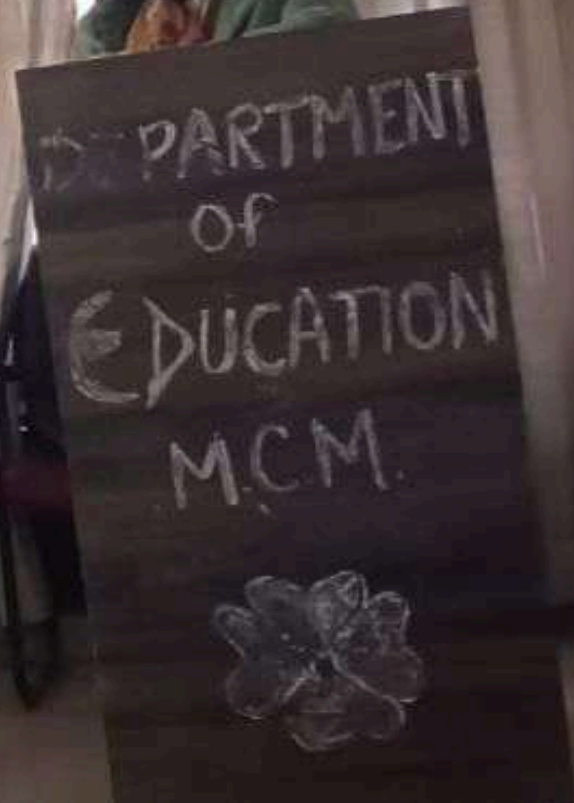 DEPARTMENT
Of
EDUCATION
M.C.M.